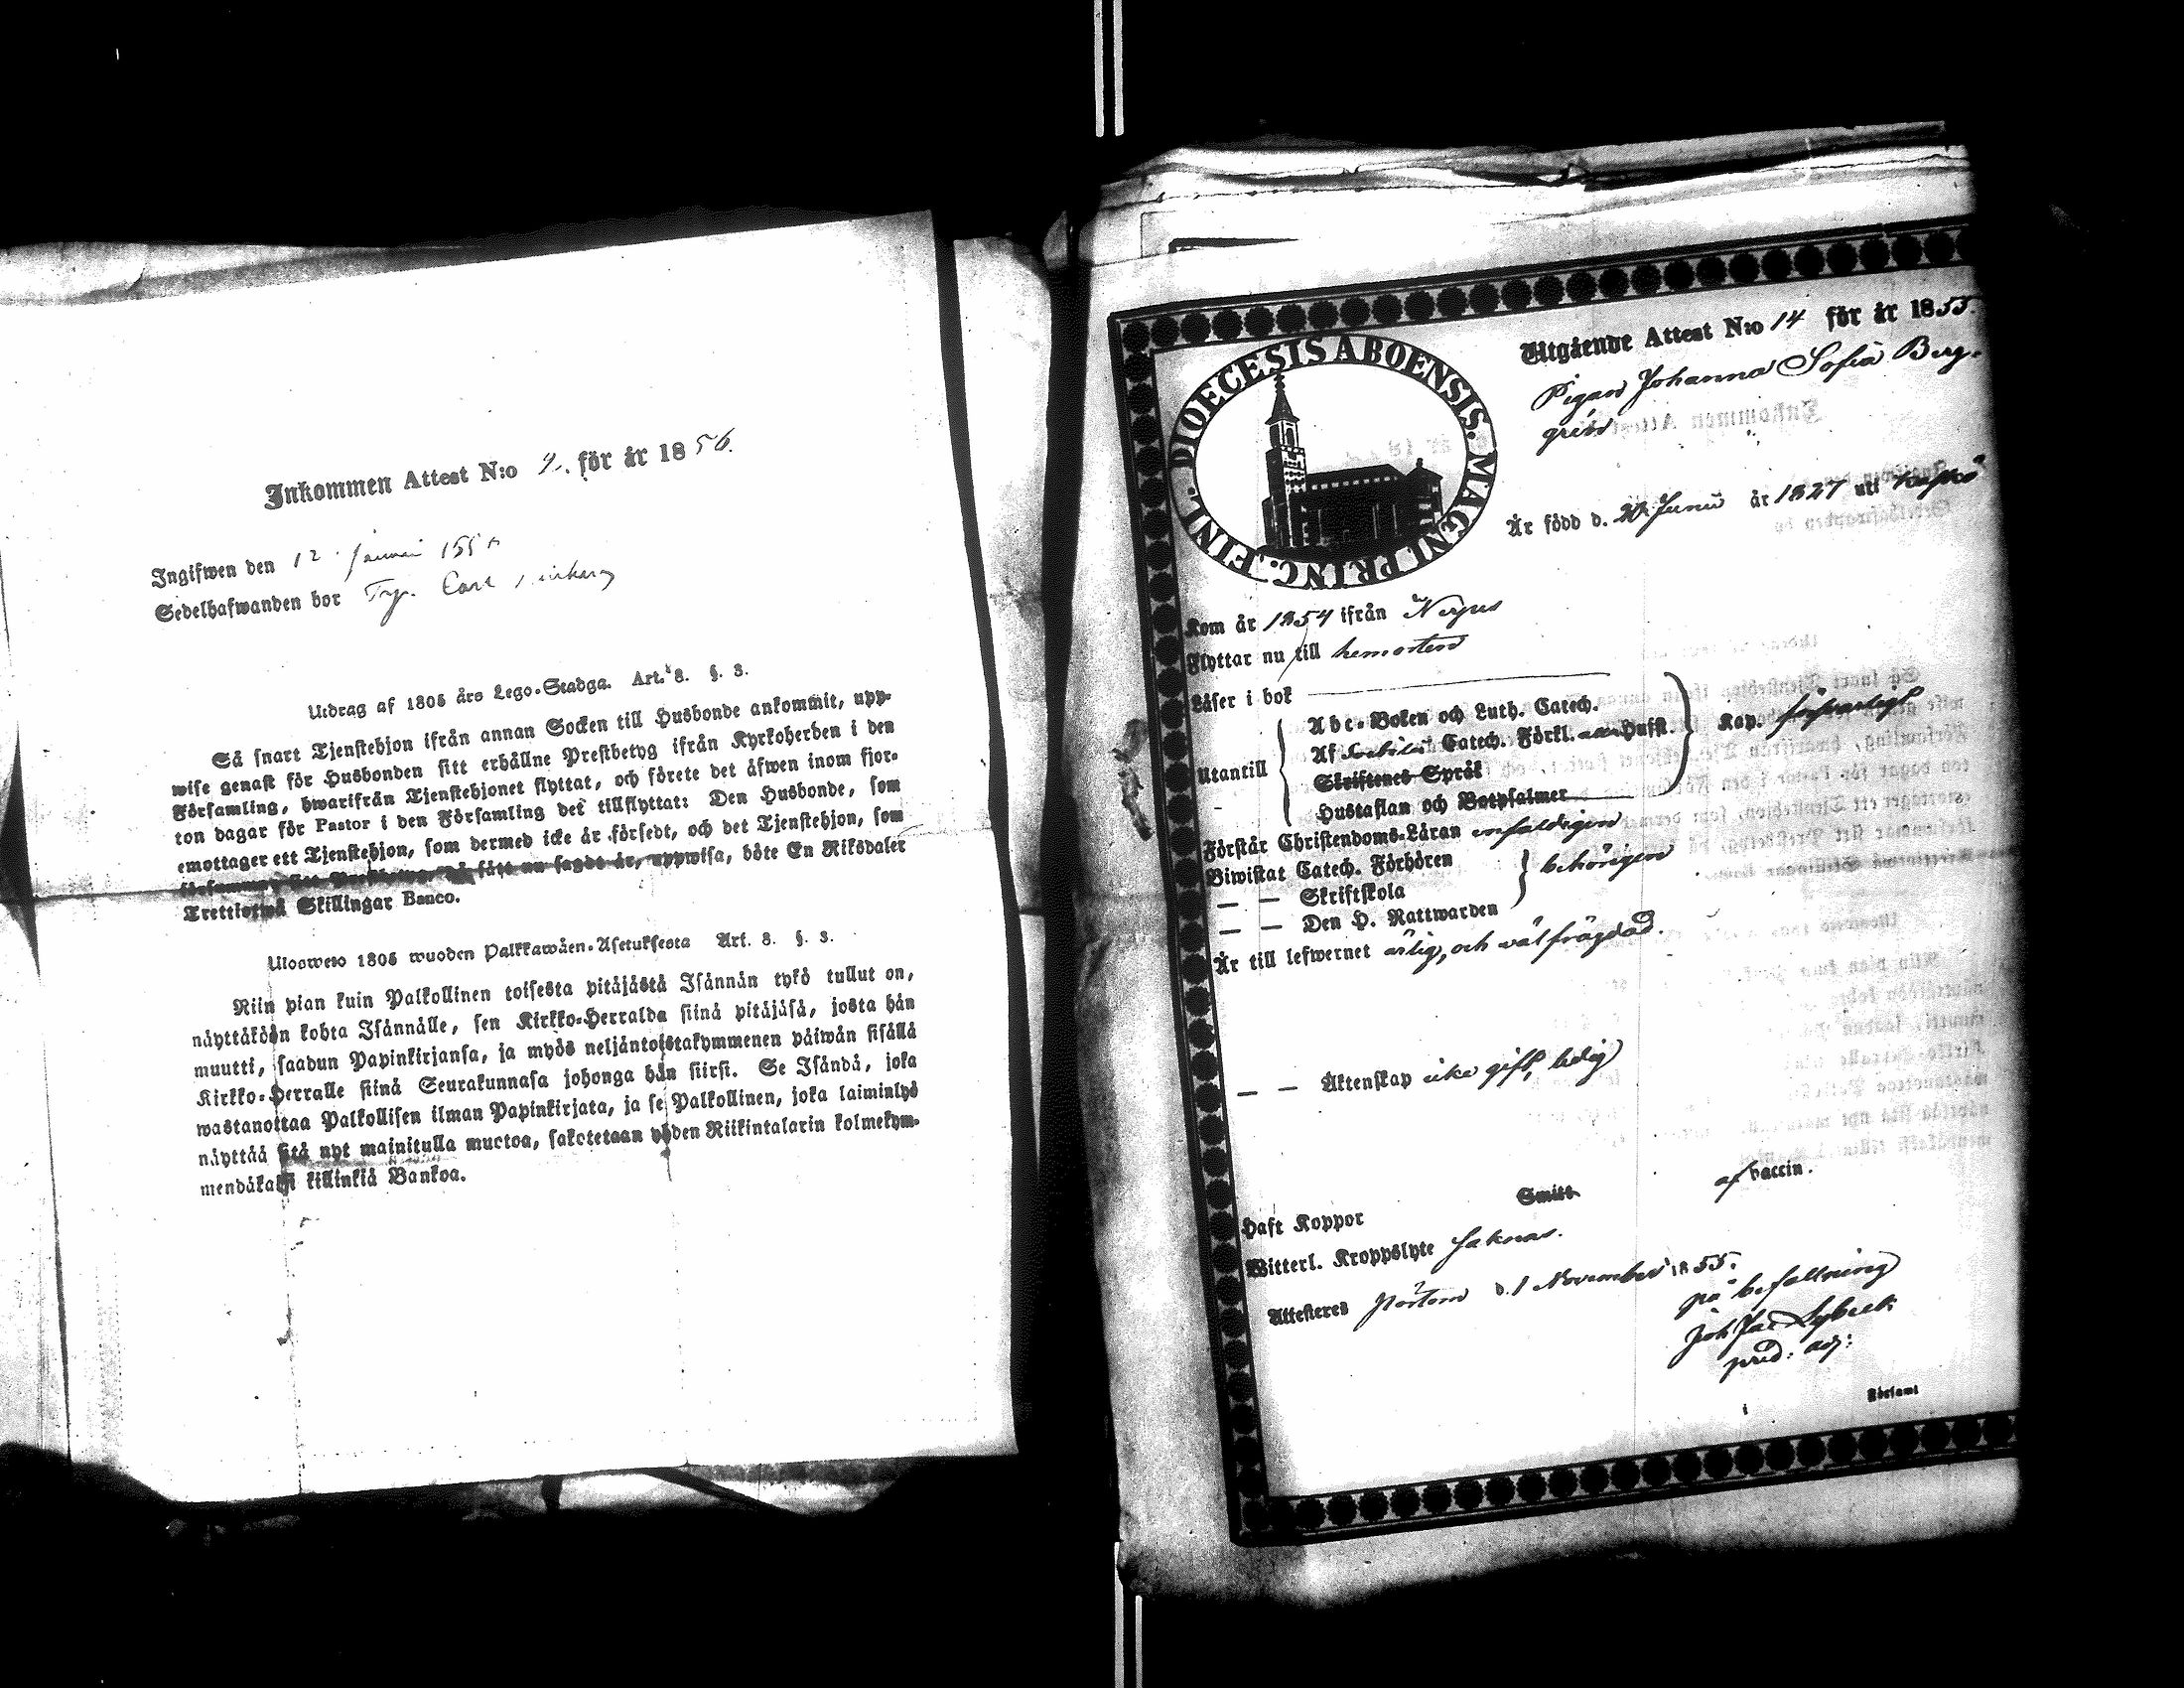 Inkommen Attest N:o 9. för år 1856.
Ingifwen den 12 Januari
Sedelhafwanden bor Carl
Utdrag af 1805 års Lego-Stadga. Art. 8. §. 3.
Så snart Tjenstehjon ifrån annan Socken till Husbonde ankommit, upp-
wise genast för Husbonden sitt erhållne Prestbetyg ifrån Kyrkoherden i den
Församling, hwarifrån Tjenstehjonet flyttat, och förete det äfwen inom fjor-
ton dagar för Pastor i den Församling det tillflyttat: Den Husbonde, som
emottager ett Tjenstehjon, som dermed icke är försedt, och det Tjenstehjon, som
sätt nu sagdt är, uppwisa, böte En Riksdaler
Trettiotwå Skillingar Banco.
Ulosweto 1805 wuoden Palkkawäen-Asetuksesta Art. 8. §. 3.
Niin pian kuin Palkollinen toisesta pitäjästä Isännän tykö tullut on,
näyttäköön kohta Isännälle, sen Kirkko-Herralda siinä pitäjäsä, josta hän
muutti, saadun Papinkirjansa, ja myös neljäntoistakymmenen päiwän sisällä
Kirkko-Herralle siinä Seurakunnasa johonga hän siirsi. Se Isändä, joka
wastanottaa Palkollisen ilman Papinkirjata, ja se Palkollinen, joka laiminlyö
näyttää sitä nyt mainitulla muotoa, sakotetaan yhden Riikintalarin kolmekym-
mendäkaksi killinkiä Bankoa.
DIOECESIS ABOENSIS. MAGNI PRINC. FINL.
Utgående Attest N:o 14 för år 1855.
Pigan Johanna Sofia Berg-
gren
Är född d. 20 Junii år 1827 uti Kaskö
Kom år 1854 ifrån Nerpes
Flyttar nu till hemorten
Läser i bok
Abc-Boken och Luth. Catech.
Af Svebilii Catech. Förkl. Husst.
Utantill
Skriftenes Språk
Hustaflan och Botpsalmer
Kap. försvarligt
Förstår Christendoms-Läran enfaldigen
Biwistat Catech. Förhören
— — Skriftskola
— — Den H. Nattwarden
behörigen
Är till lefwernet ärlig, och väl frägdad.
— — Äktenskap icke gift, ledig
Haft Koppor Smitt af vaccin.
Witterl. Kroppslyte saknas.
Attesteres Pörtom d. 1 November 1855.
på befallning
Joh Jac Lybeck
pred: adj:
i Församl